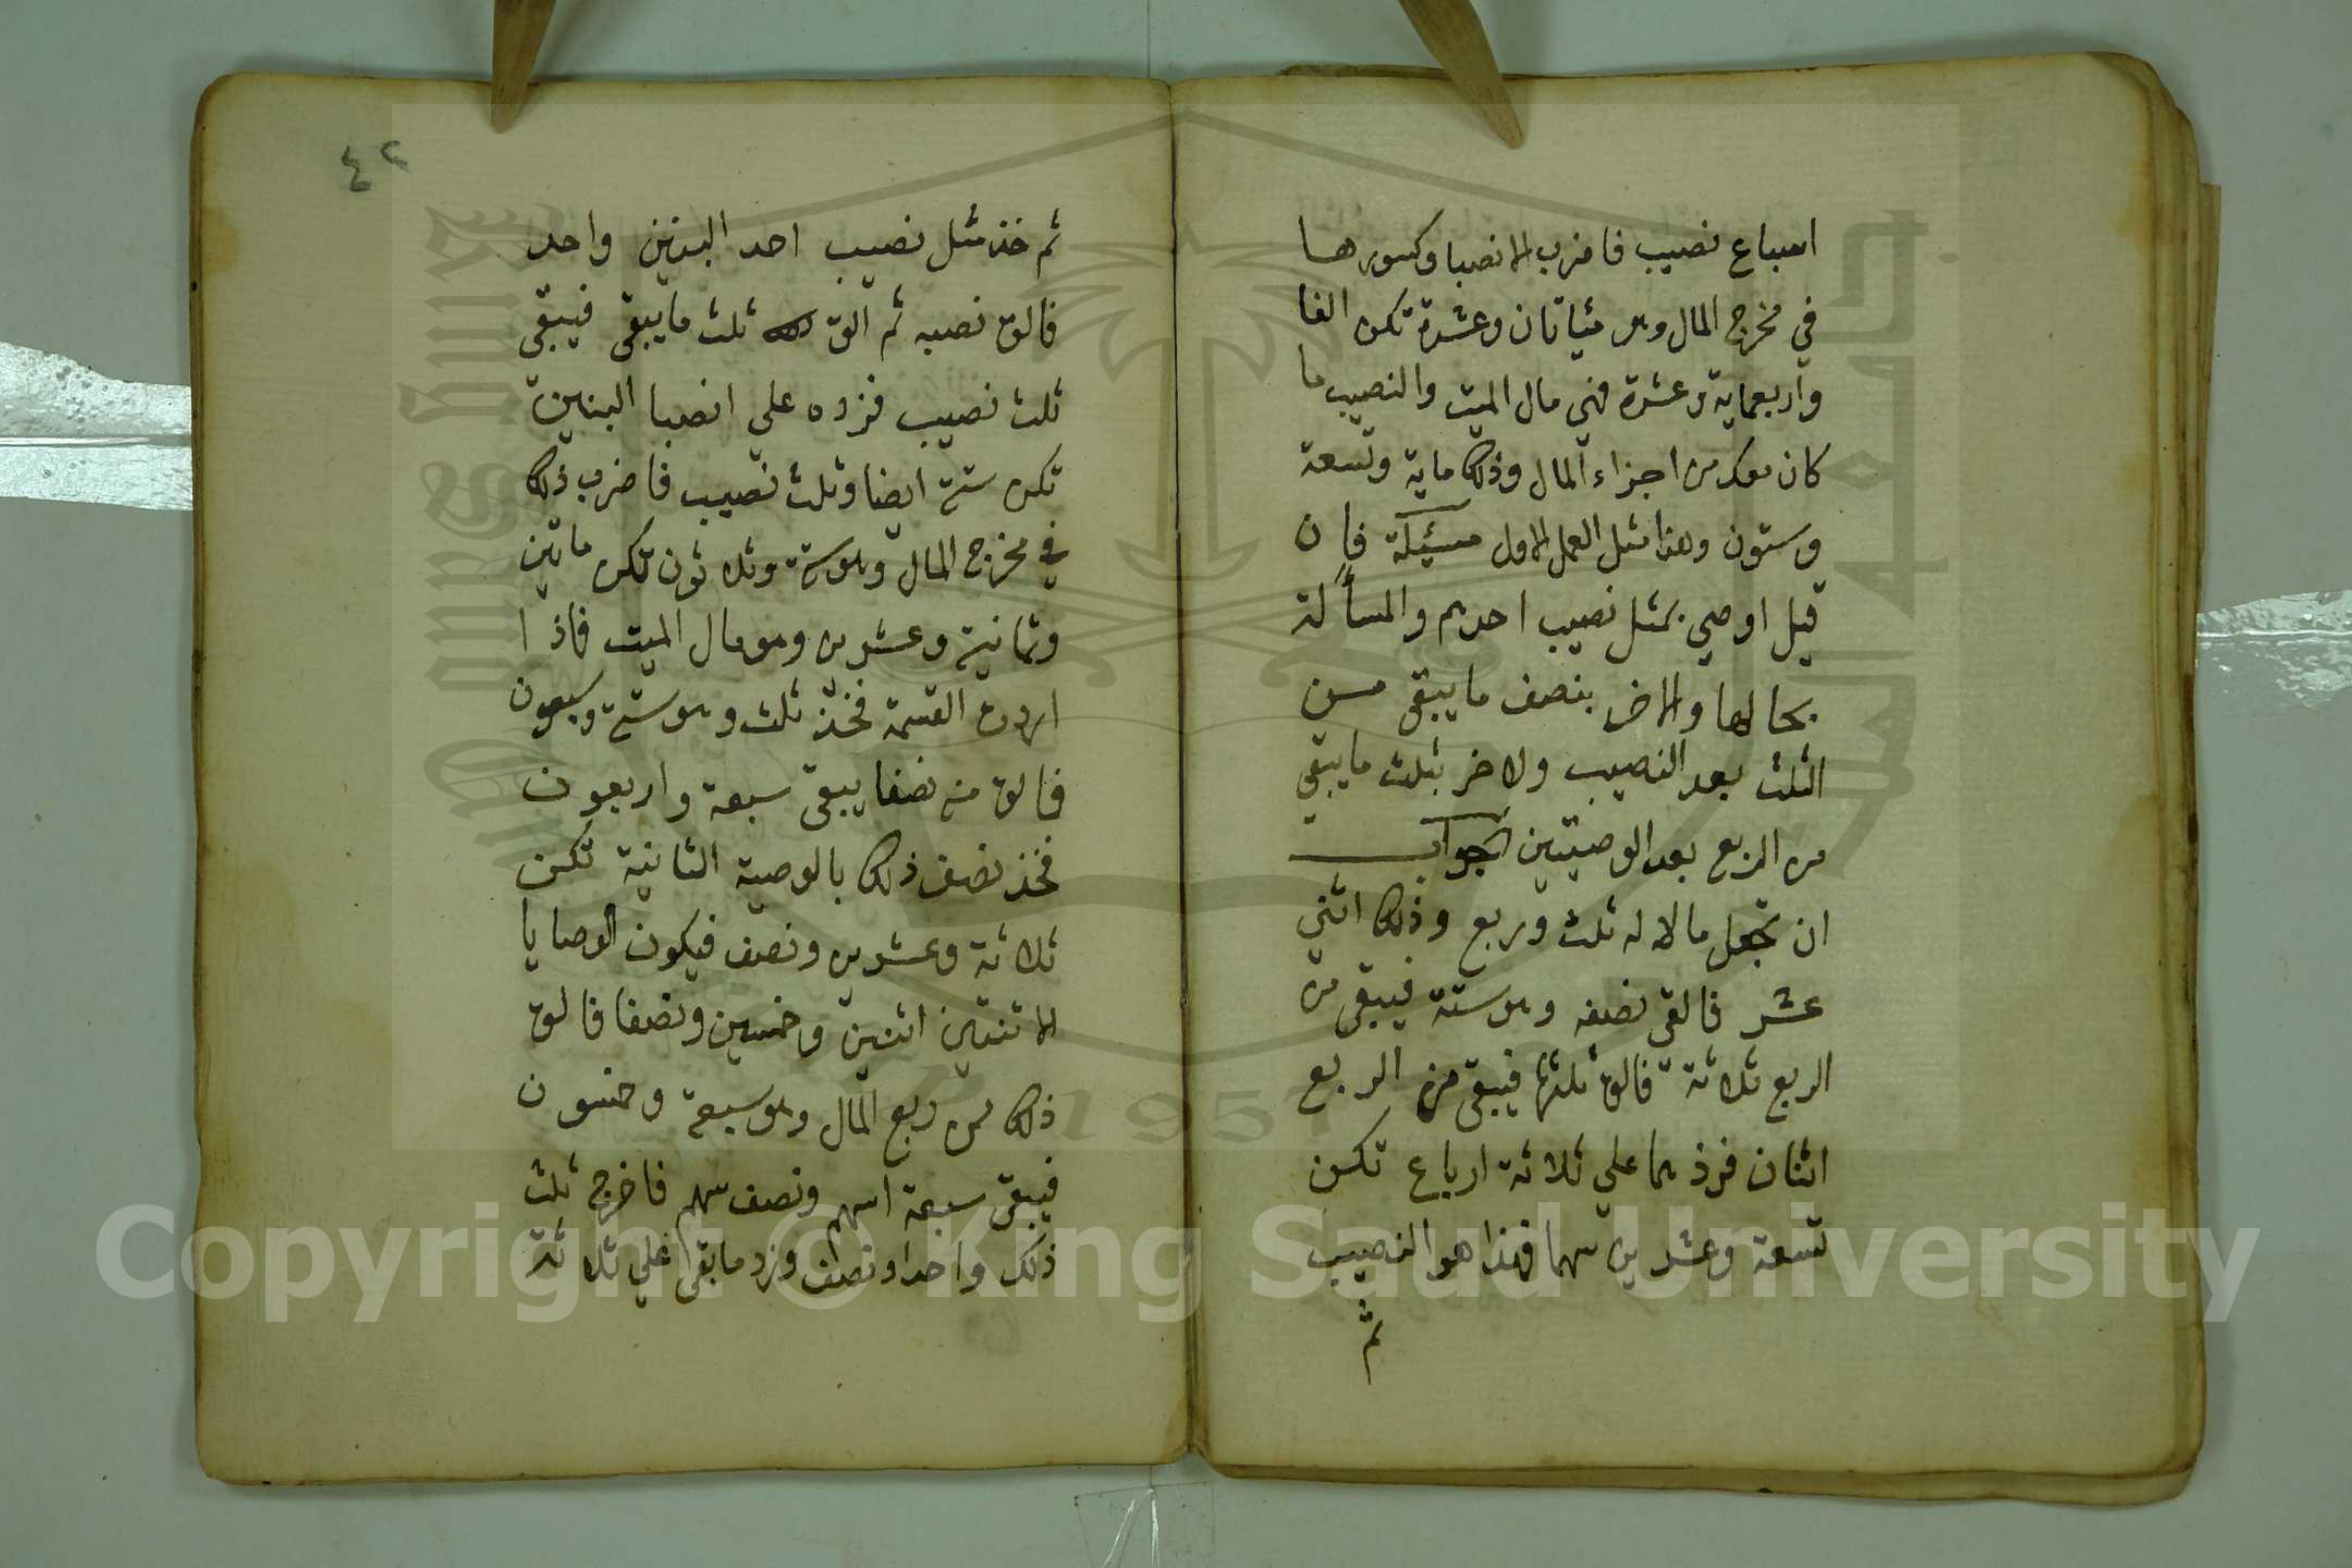 اسباع نصيب فاضرب الانصبا وكسورها
في مخرج المال وهو مئياتان وعشرة تكن الفا
واربعماية وعشرة فهي مال الميت والنصيب ما
كان معك من اجزاء المال وذلك ماية وتسعة
وستون وهذا مثل العمل الاول مسئيلة فان
قيل اوصي بمثل نصيب احدهم والمسألة
بحالها والاخر بنصف ما يبقي مسن
الثلث بعد النصيب ولاخر بثلث ما يبقي
من الربع بعد الوصيتين الجواب
ان تجعل مالا له ثلث وربع وذلك اثني
عشر فالقي نصفه وهو ستة فيبقي من
الربع ثلاثة فالق ثلثها فيبقي من الربع
اثنان فزدهما علي ثلاثة ارباع تكن
تسعة وعشرين سهما فهذا هو النصيب
ثم
٤٢
ثم خذ مثل نصيب احد البنين واحد
فالق نصيبه ثم الق ثلث ما يبقي فيبقي
ثلث نصيب فزده علي انصبا البنين
تكن ستة ايضا وثلث نصيب فاضرب ذلك
في مخرج المال وهو ستة وثلاثون تكن ماتين
وثمانية وعشرين وهو مال الميت فاذا
اردت القسمة فخذ ثلث وهو ستة وسبعون
فالق منه نصفا يبقي سبعة واربعون
فخذ نصف ذلك بالوصية الثانية تكن
ثلاثة وعشرين ونصف فيكون الوصايا
الاتنتين اثنين وخمسين ونصفا فالق
ذلك من ربع المال وهو سبعة وخمسون
فيبقي سبعة اسهم ونصف سهم فاخرج ثلث
ذلك واحدا ونصف وزد ما بقي علي ثلاثة
Copyright © King Saud University
1957